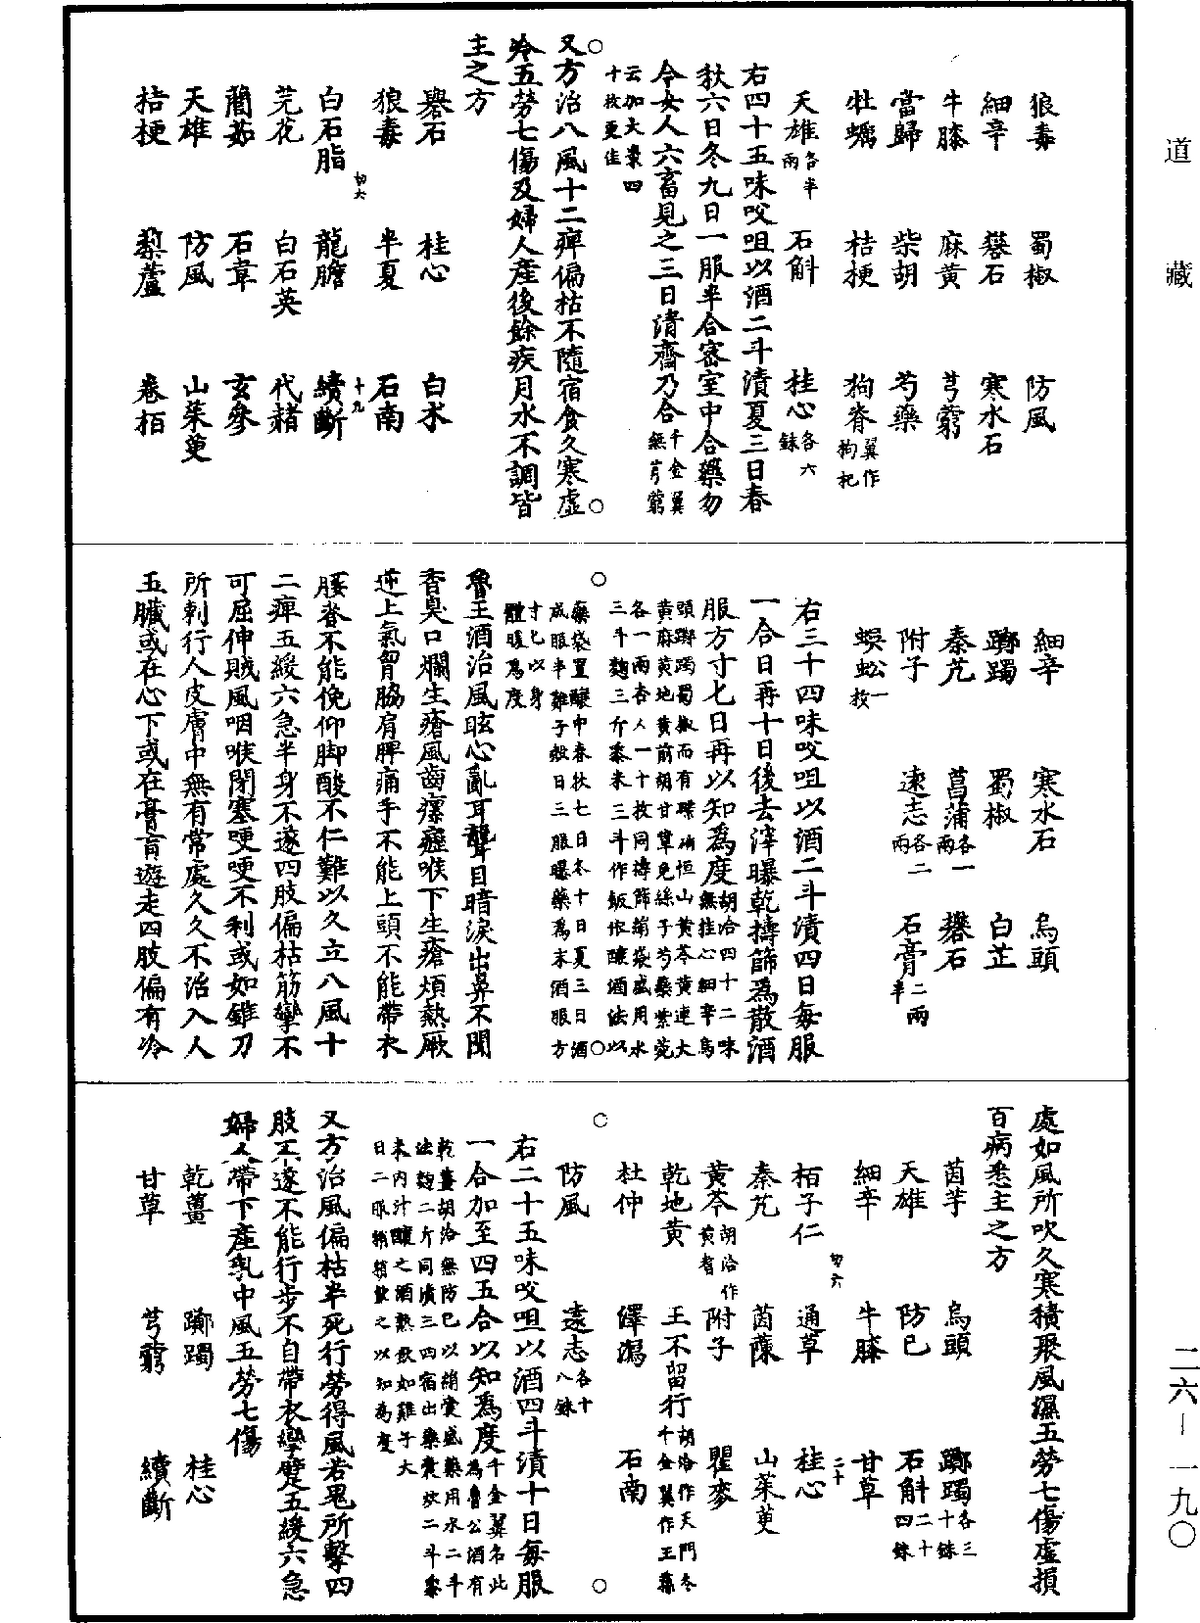 道藏
狼毒　蜀椒　防風
細辛　礜石　寒水石
牛膝　麻黃　芎藭
當歸　柴胡　芍藥
牡蠣　桔梗　狗脊翼作枸杞
天雄各半兩　石斛　桂心各六銖
右四十五味㕮咀以酒二斗漬夏三日春
秋六日冬九日一服半合密室中合藥勿
令女人六畜見之三日清齋乃合千金翼無芎藭
云加大棗四十枚更佳
又方治八風十二痺偏枯不隨宿食久寒虛
冷五勞七傷及婦人產後餘疾月水不調皆
主之方
礜石　桂心　白朮
狼毒　半夏　石南
白石脂　龍膽　續斷
芫花　白石英　代赭
藺茹　石韋　玄參
天雄　防風　山茱萸
桔梗　藜蘆　卷栢
細辛　寒水石　烏頭
躑躅　蜀椒　白芷
秦艽　菖蒲各一兩　礜石
附子　遠志各二兩　石膏二兩半
蜈蚣一枚
右三十四味㕮咀以酒二斗漬四日每服
一合日再十日後去滓曝乾擣篩為散酒
服方寸匕日再以知為度胡洽四十二味無桂心細辛烏
頭躑躅蜀椒而有朴硝恒山黃芩黃連大黃麻黃地黃前胡甘草兔絲子芍藥紫菀
各一兩杏人一十枚同擣篩絹袋盛用水三斗麴三斤黍米三斗作飯依釀酒法以
藥袋置釀中春秋七日冬十日夏三日酒成服半雞子殼日三服曝藥為末酒服方
寸匕以身體暖為度
魯王酒治風眩心亂耳聾目暗淚出鼻不聞
香臭口爛生瘡風齒瘰癧喉下生瘡煩熱厥
逆上氣胷脇肩脾痛手不能上頭不能帶衣
腰脊不能俛仰脚酸不仁難以久立八風十
二痺五緩六急半身不遂四肢偏枯筋攣不
可屈伸賊風咽喉閉塞哽哽不利或如錐刀
所刺行人皮膚中無有常處久久不治入人
五臟或在心下或在膏肓遊走四肢偏有冷
處如風所吹久寒積聚風濕五勞七傷虛損
百病悉主之方
茵芋　烏頭　躑躅各三十銖
天雄　防巳　石斛二十四銖
細辛　牛膝　甘草
栢子仁　通草　桂心
秦艽　茵蔯　山茱萸
黃芩胡洽作黃耆　附子　瞿麥
乾地黃　王不留行胡洽作天門冬千金翼作王蓀
杜仲　澤瀉　石南
防風　遠志各十八銖
右二十五味㕮咀以酒四斗漬十日每服
一合加至四五合以知為度千金翼名此為魯公酒有
乾薑胡洽無防巳以絹囊盛藥用水二斗法麴二斤同漬三四宿出藥囊炊二斗黍
米內汁釀之酒熟飲如雞子大日二服稍稍飲之以知為度
又方治風偏枯半死行勞得風若鬼所擊四
肢不遂不能行步不自帶衣攣躄五緩六急
婦人帶下產乳中風五勞七傷
乾薑　躑躅　桂心
甘草　芎藭　續斷
二六－一九〇